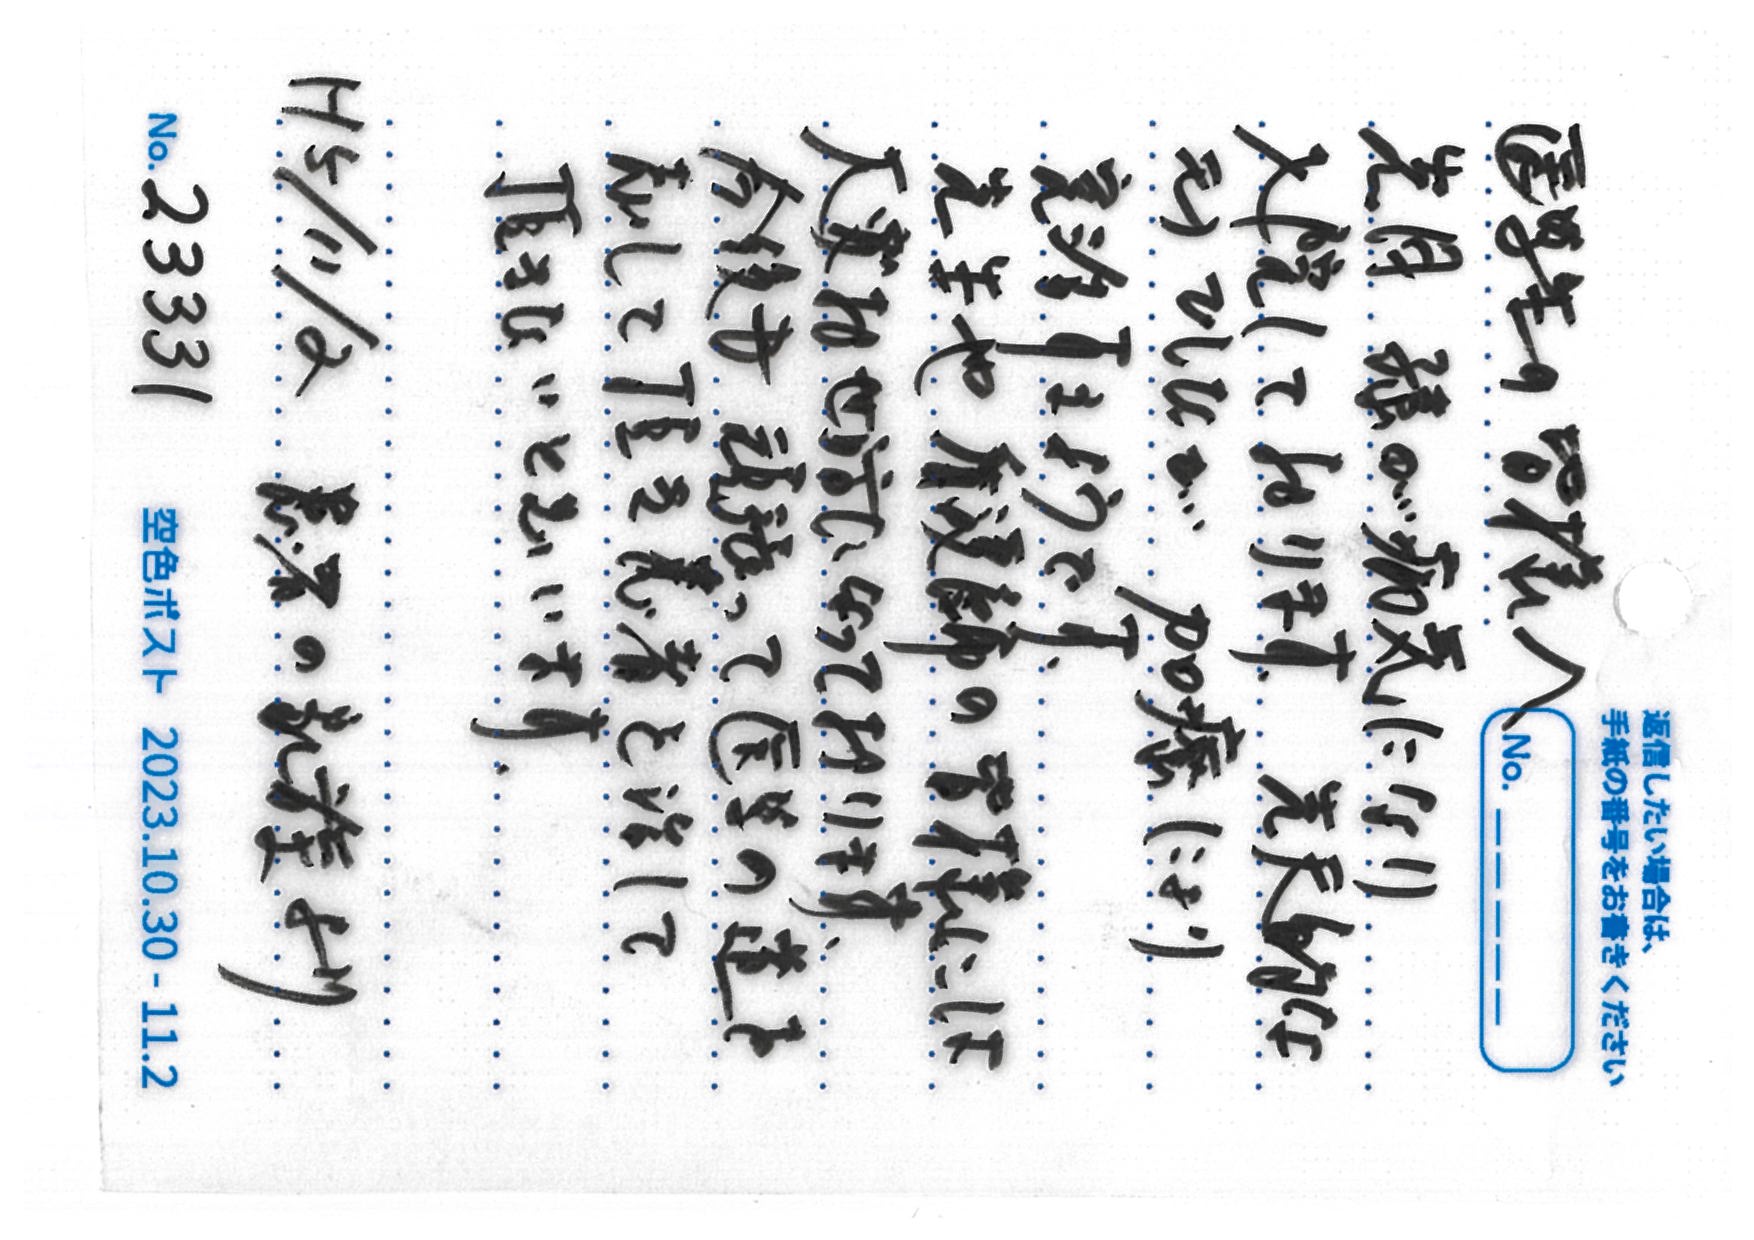 返信したい場合は、
手紙の番号をお書きください
No. _ _ _ _ _
医学生の皆様へ
先月 孫が病気になり
入院しております。先天的な
ものでしたが 加療により
完治するようです。
先生や看護師の皆様には
大変お世話になっております。
今後も頑張って医学の道を
志して頂き患者を治して
頂きたいと思います。
H5/11/2 患者の家族より
No. 23331
空色ポスト 2023.10.30 - 11.2